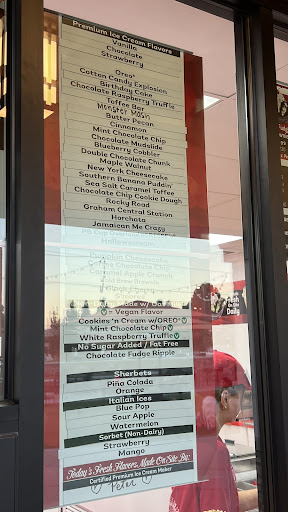 Premium Ice Cream Flavors
Vanilla
Chocolate
Strawberry
Oreo®
Cotton Candy Explosion
Birthday Cake
Chocolate Raspberry Truffle
Toffee Bar
Monster Mash
Butter Pecan
Cinnamon
Mint Chocolate Chip
Chocolate Mudslide
Blueberry Cobbler
Double Chocolate Chunk
Maple Walnut
New York Cheesecake
Southern Banana Puddin'
Sea Salt Caramel Toffee
Chocolate Chip Cookie Dough
Rocky Road
Graham Central Station
Horchata
Jamaican Me Crazy
Pumpkin Cheesecake
Caramel Apple
Made w/
= Vegan Flavor
Cookies 'n Cream w/OREO®
Mint Chocolate Chip
White Raspberry Truffle
No Sugar Added / Fat Free
Chocolate Fudge Ripple
Sherbets
Piña Colada
Orange
Italian Ices
Blue Pop
Sour Apple
Watermelon
Sorbet (Non-Dairy)
Strawberry
Mango
Today's Fresh Flavors Made On Site By:
Certified Premium Ice Cream Maker
Peter
Daily